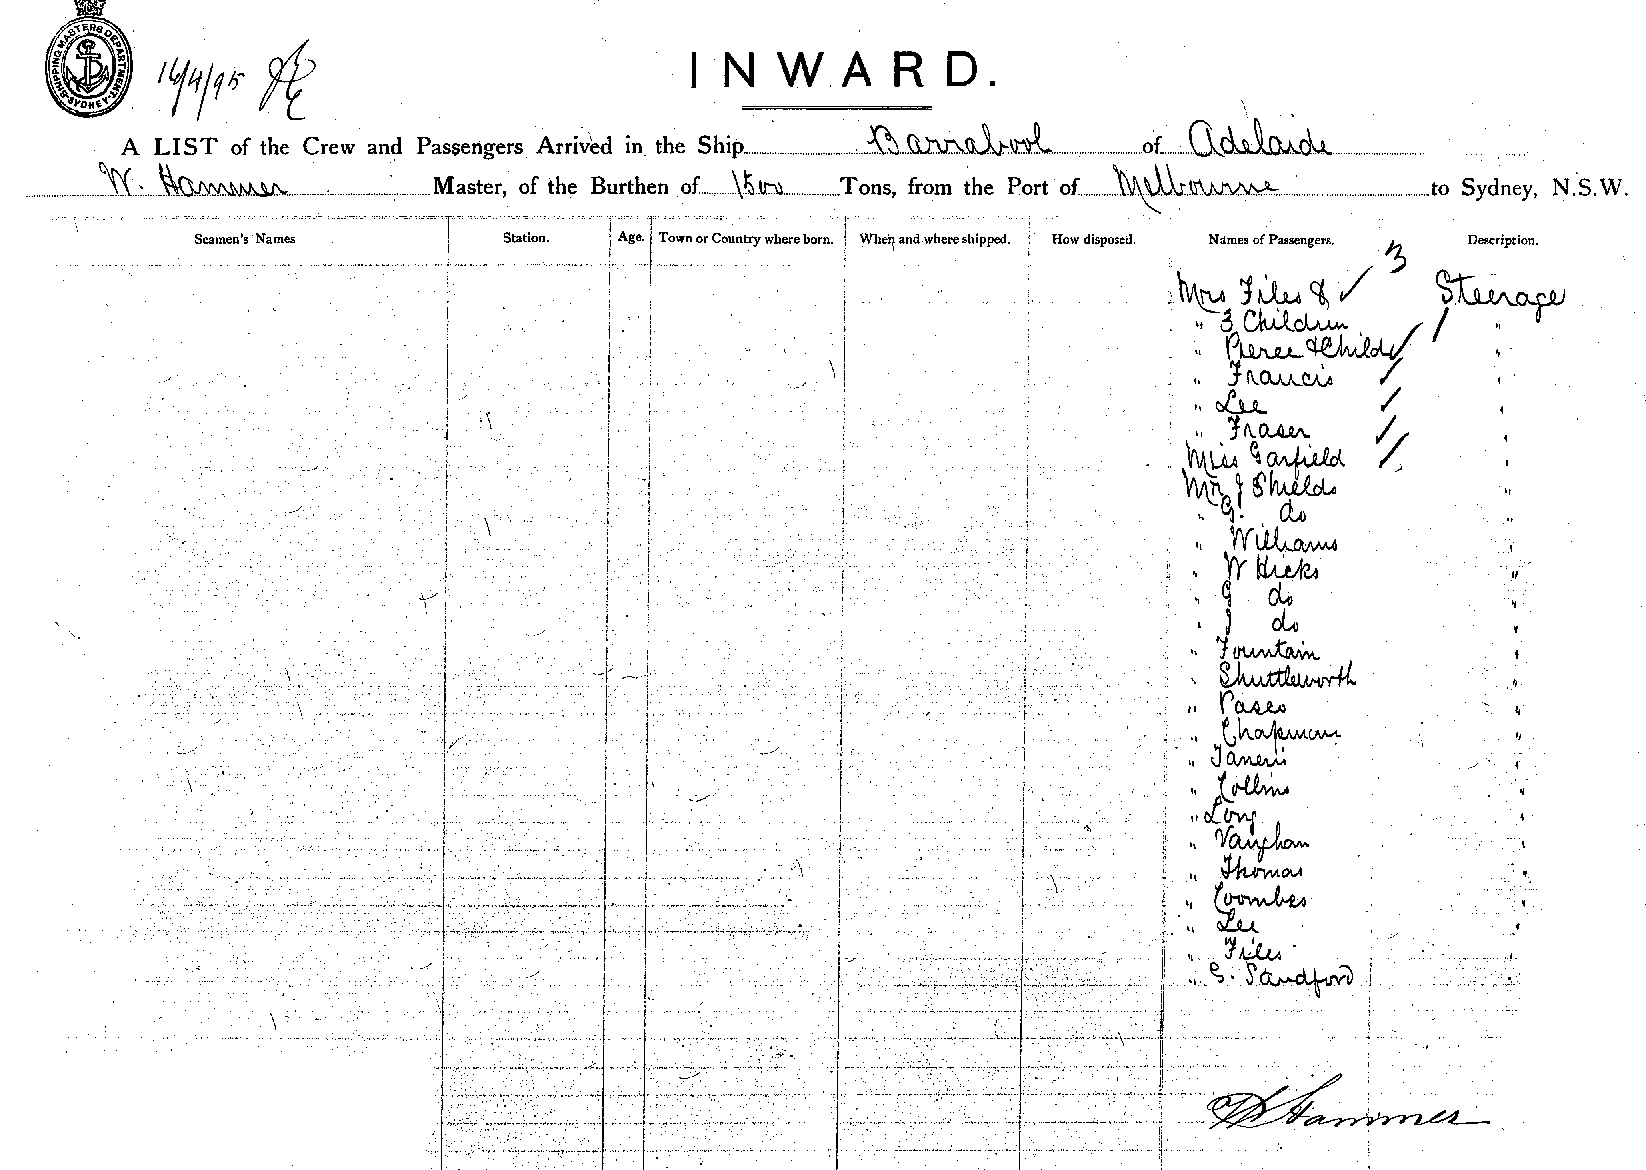 SHIPPING MASTERS DEPARTMENT SYDNEY
16/4/95
INWARD.
A LIST of the Crew and Passengers Arrived in the Ship Barrabool of Adelaide
W. Hammer Master, of the Burthen of 1500 Tons, from the Port of Melbourne to Sydney, N.S.W.
Seamen's Names Station. Age. Town or Country where born. When and where shipped. How disposed. Names of Passengers. Description.
3
Mrs Files & ✓ Steerage
" 3 Children / "
" Pierce & Child ✓ "
" Francis ✓ "
" Lee ✓ "
" Fraser ✓ "
Miss Garfield ✓ "
Mr J Shields "
" G. do "
" Williams "
" W Hicks "
" G do "
" J do "
" Fountain "
" Shuttleworth "
" Pases "
" Chapman "
" "
" Collins "
" Long "
" Vaughan "
" Thomas "
" Coombes "
" Lee "
" Files
" G. Sandford
W Hammer